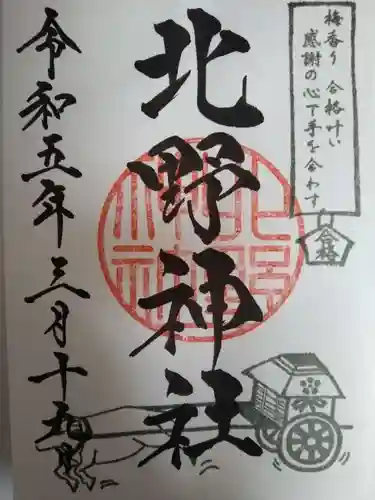 梅香り 合格叶い
感謝の心で手を合わす
合格
北野神社
北野神社
令和五年三月十五日